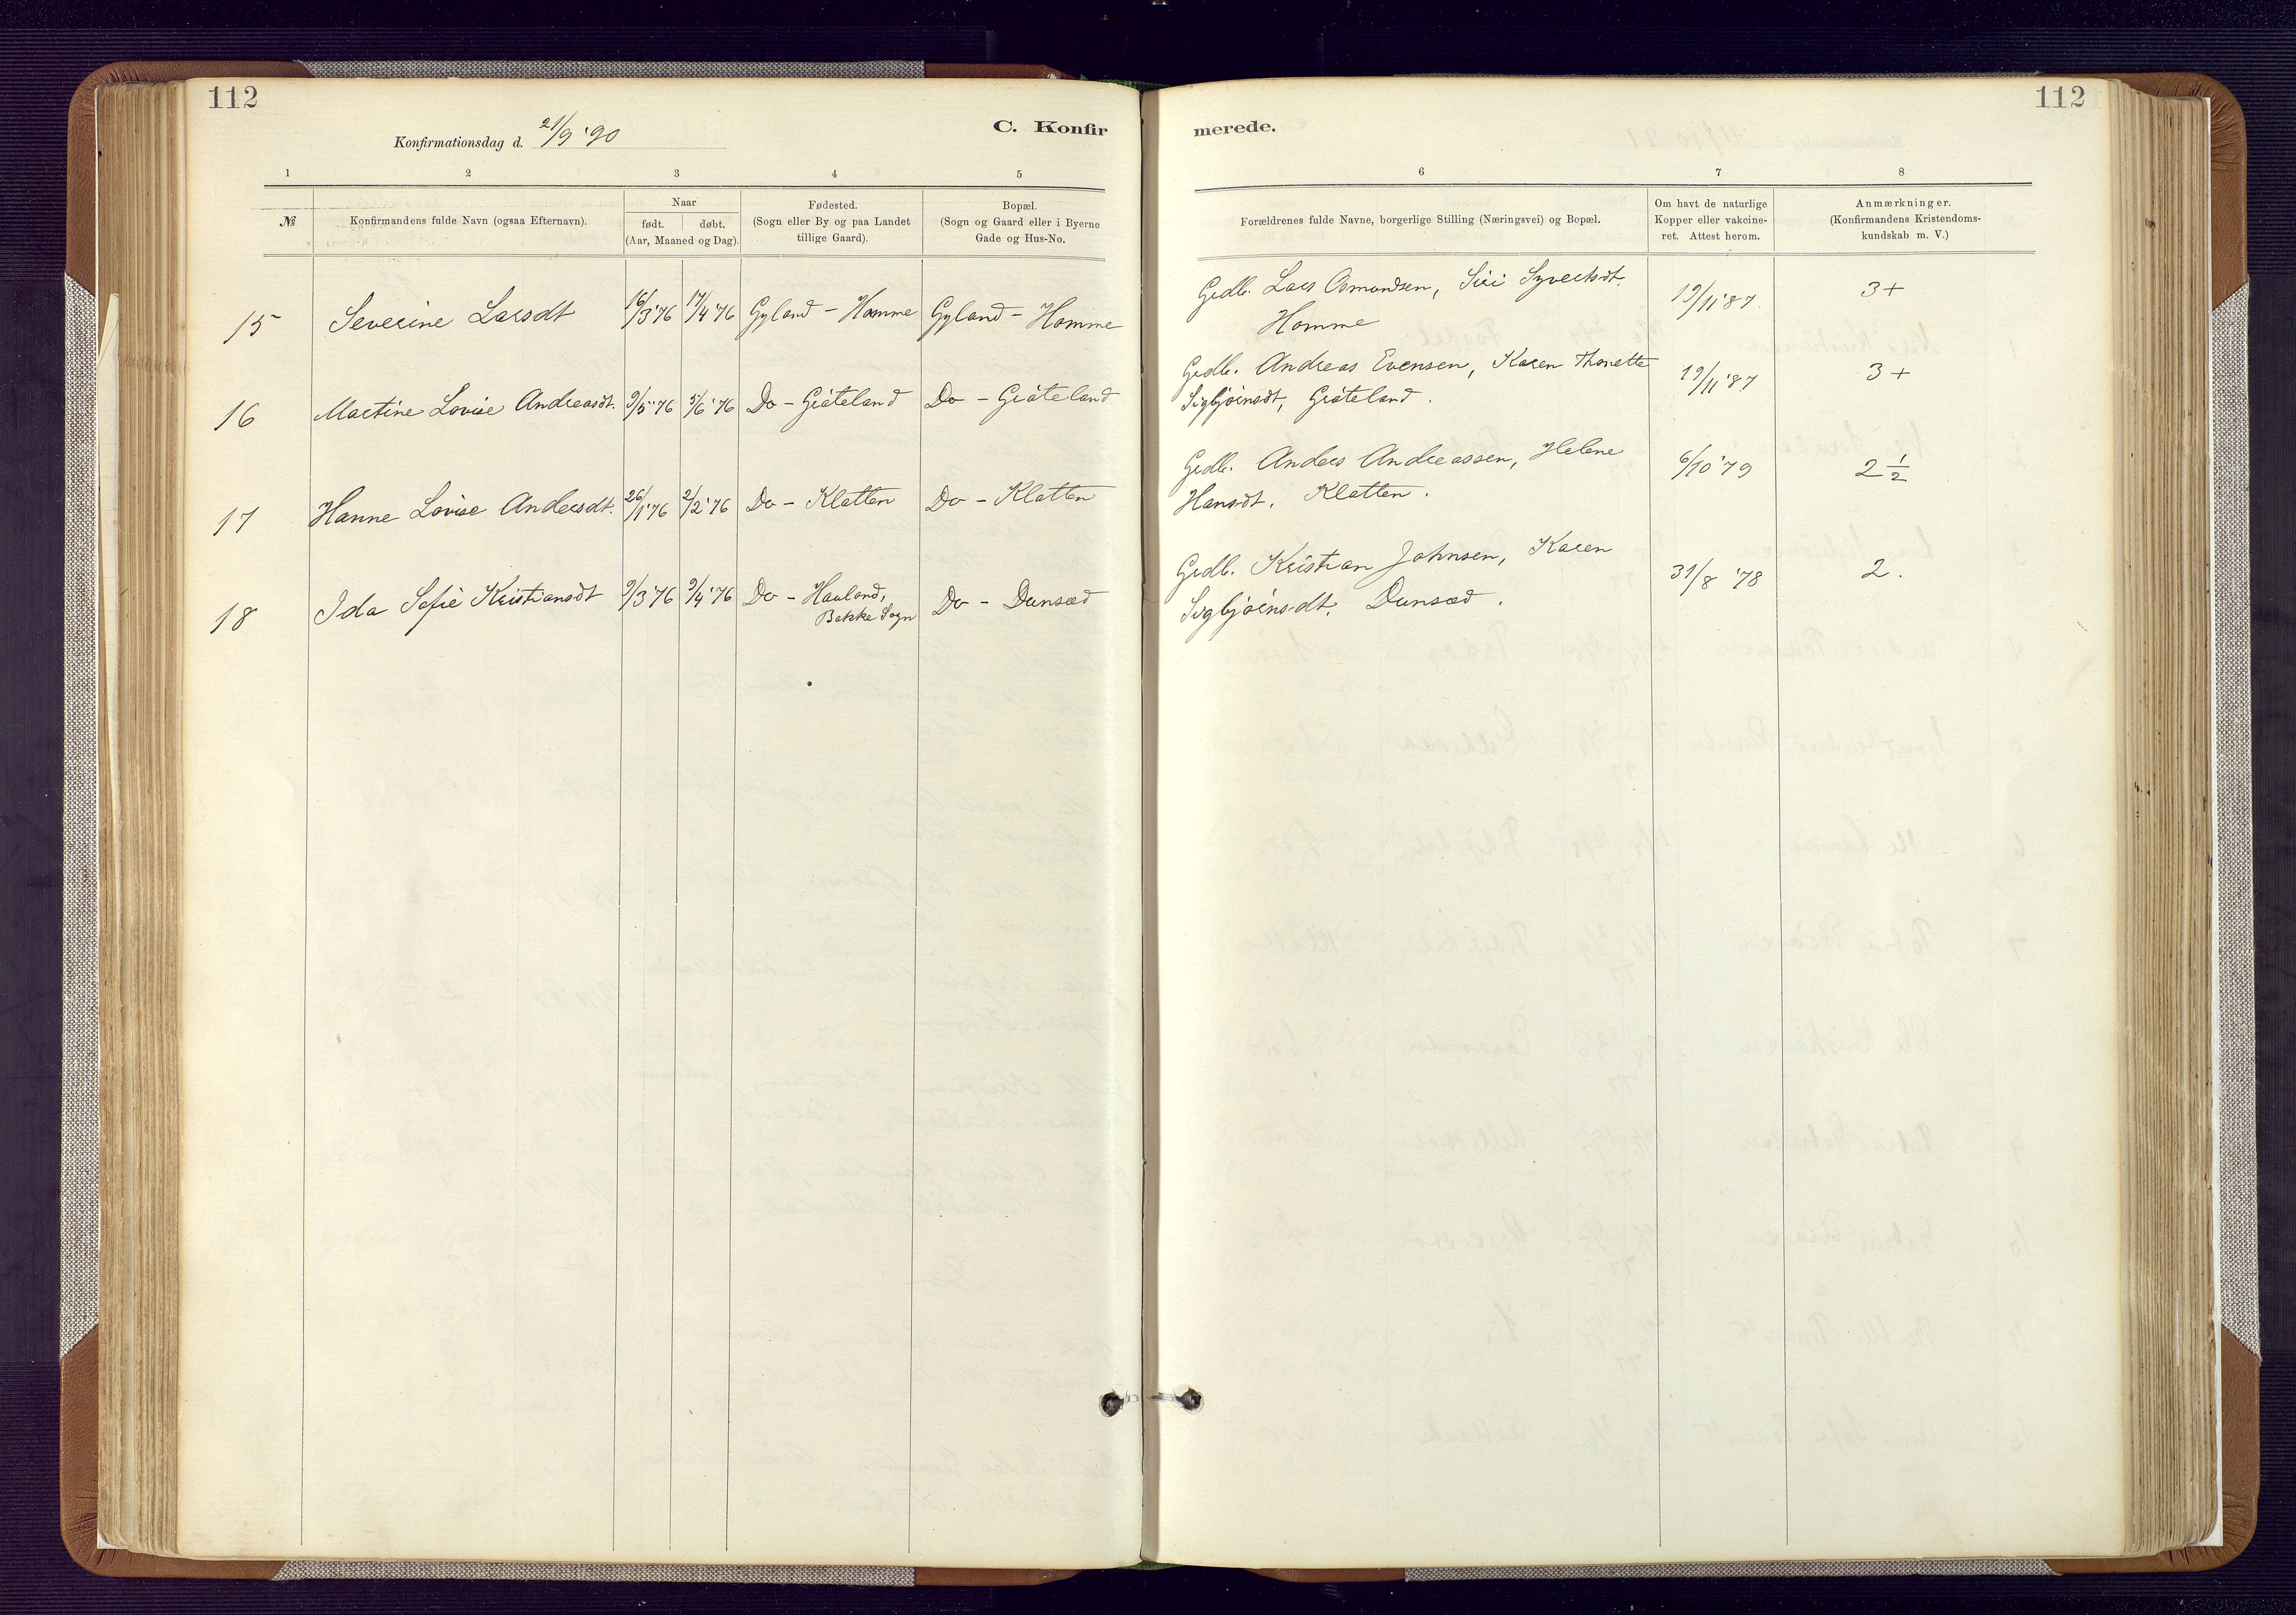 112
Konfirmationsdag d. 21/9 '90
C. Konfir
1 2 3 4 5
№
Konfirmandens fulde Navn (ogsaa Efternavn).
Naar
født. døbt.
(Aar, Maaned og Dag).
Fødested.
(Sogn eller By og paa Landet
tillige Gaard).
Bopæl.
(Sogn og Gaard eller i Byerne
Gade og Hus-No.
15 Severine Larsdt 16/3 '76 17/4 '76 Gyland - Homme Gyland - Homme
16 Martine Lovise Andreasdt. 9/5 '76 5/6 '76 Do - Gråteland Do - Gråteland
17 Hanne Lovise Andersdt. 26/1 '76 2/2 '76 Do - Klatten Do - Klatten
18 Ida Sofie Kristiansdt 9/3 '76 9/4 '76 Do - Hauland, Do - Dunsæd
Bakke Sogn
112
merede.
6 7 8
Forældrenes fulde Navne, borgerlige Stilling (Næringsvei) og Bopæl.
Om havt de naturlige
Kopper eller vakcine-
ret. Attest herom.
Anmærkninger.
(Konfirmandens Kristendoms-
kundskab m. V.)
Grdb. Lars Osmundsen, Siri Syvertsdt.
Homme
19/11 '87. 3+
Grdb. Andreas Evensen, Karen Thonette
Sigbjörnsdt, Gråteland.
19/11 '87 3+
Grdb. Anders Andreassen, Helene
Hansdt. Klatten.
6/10 '79 2 1/2
Grdb. Kristian Johnsen, Karen
Sigbjörnsdt. Dunsæd.
31/8 '78 2.